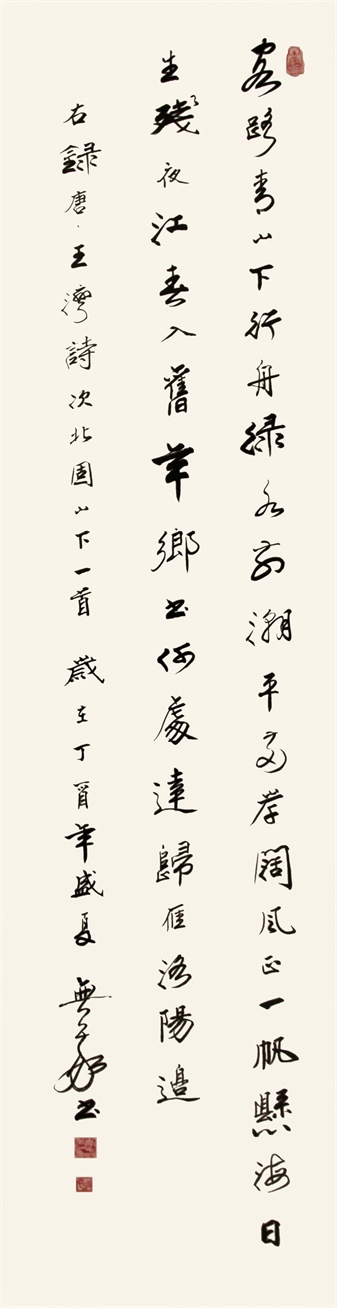 客路青山下行舟緑水前潮平两岸闊風正一帆懸海日
生殘夜江春入舊年鄉書何處達歸雁洛陽邊
右録唐·王灣詩次北固山下一首 歲在丁酉年盛夏 書